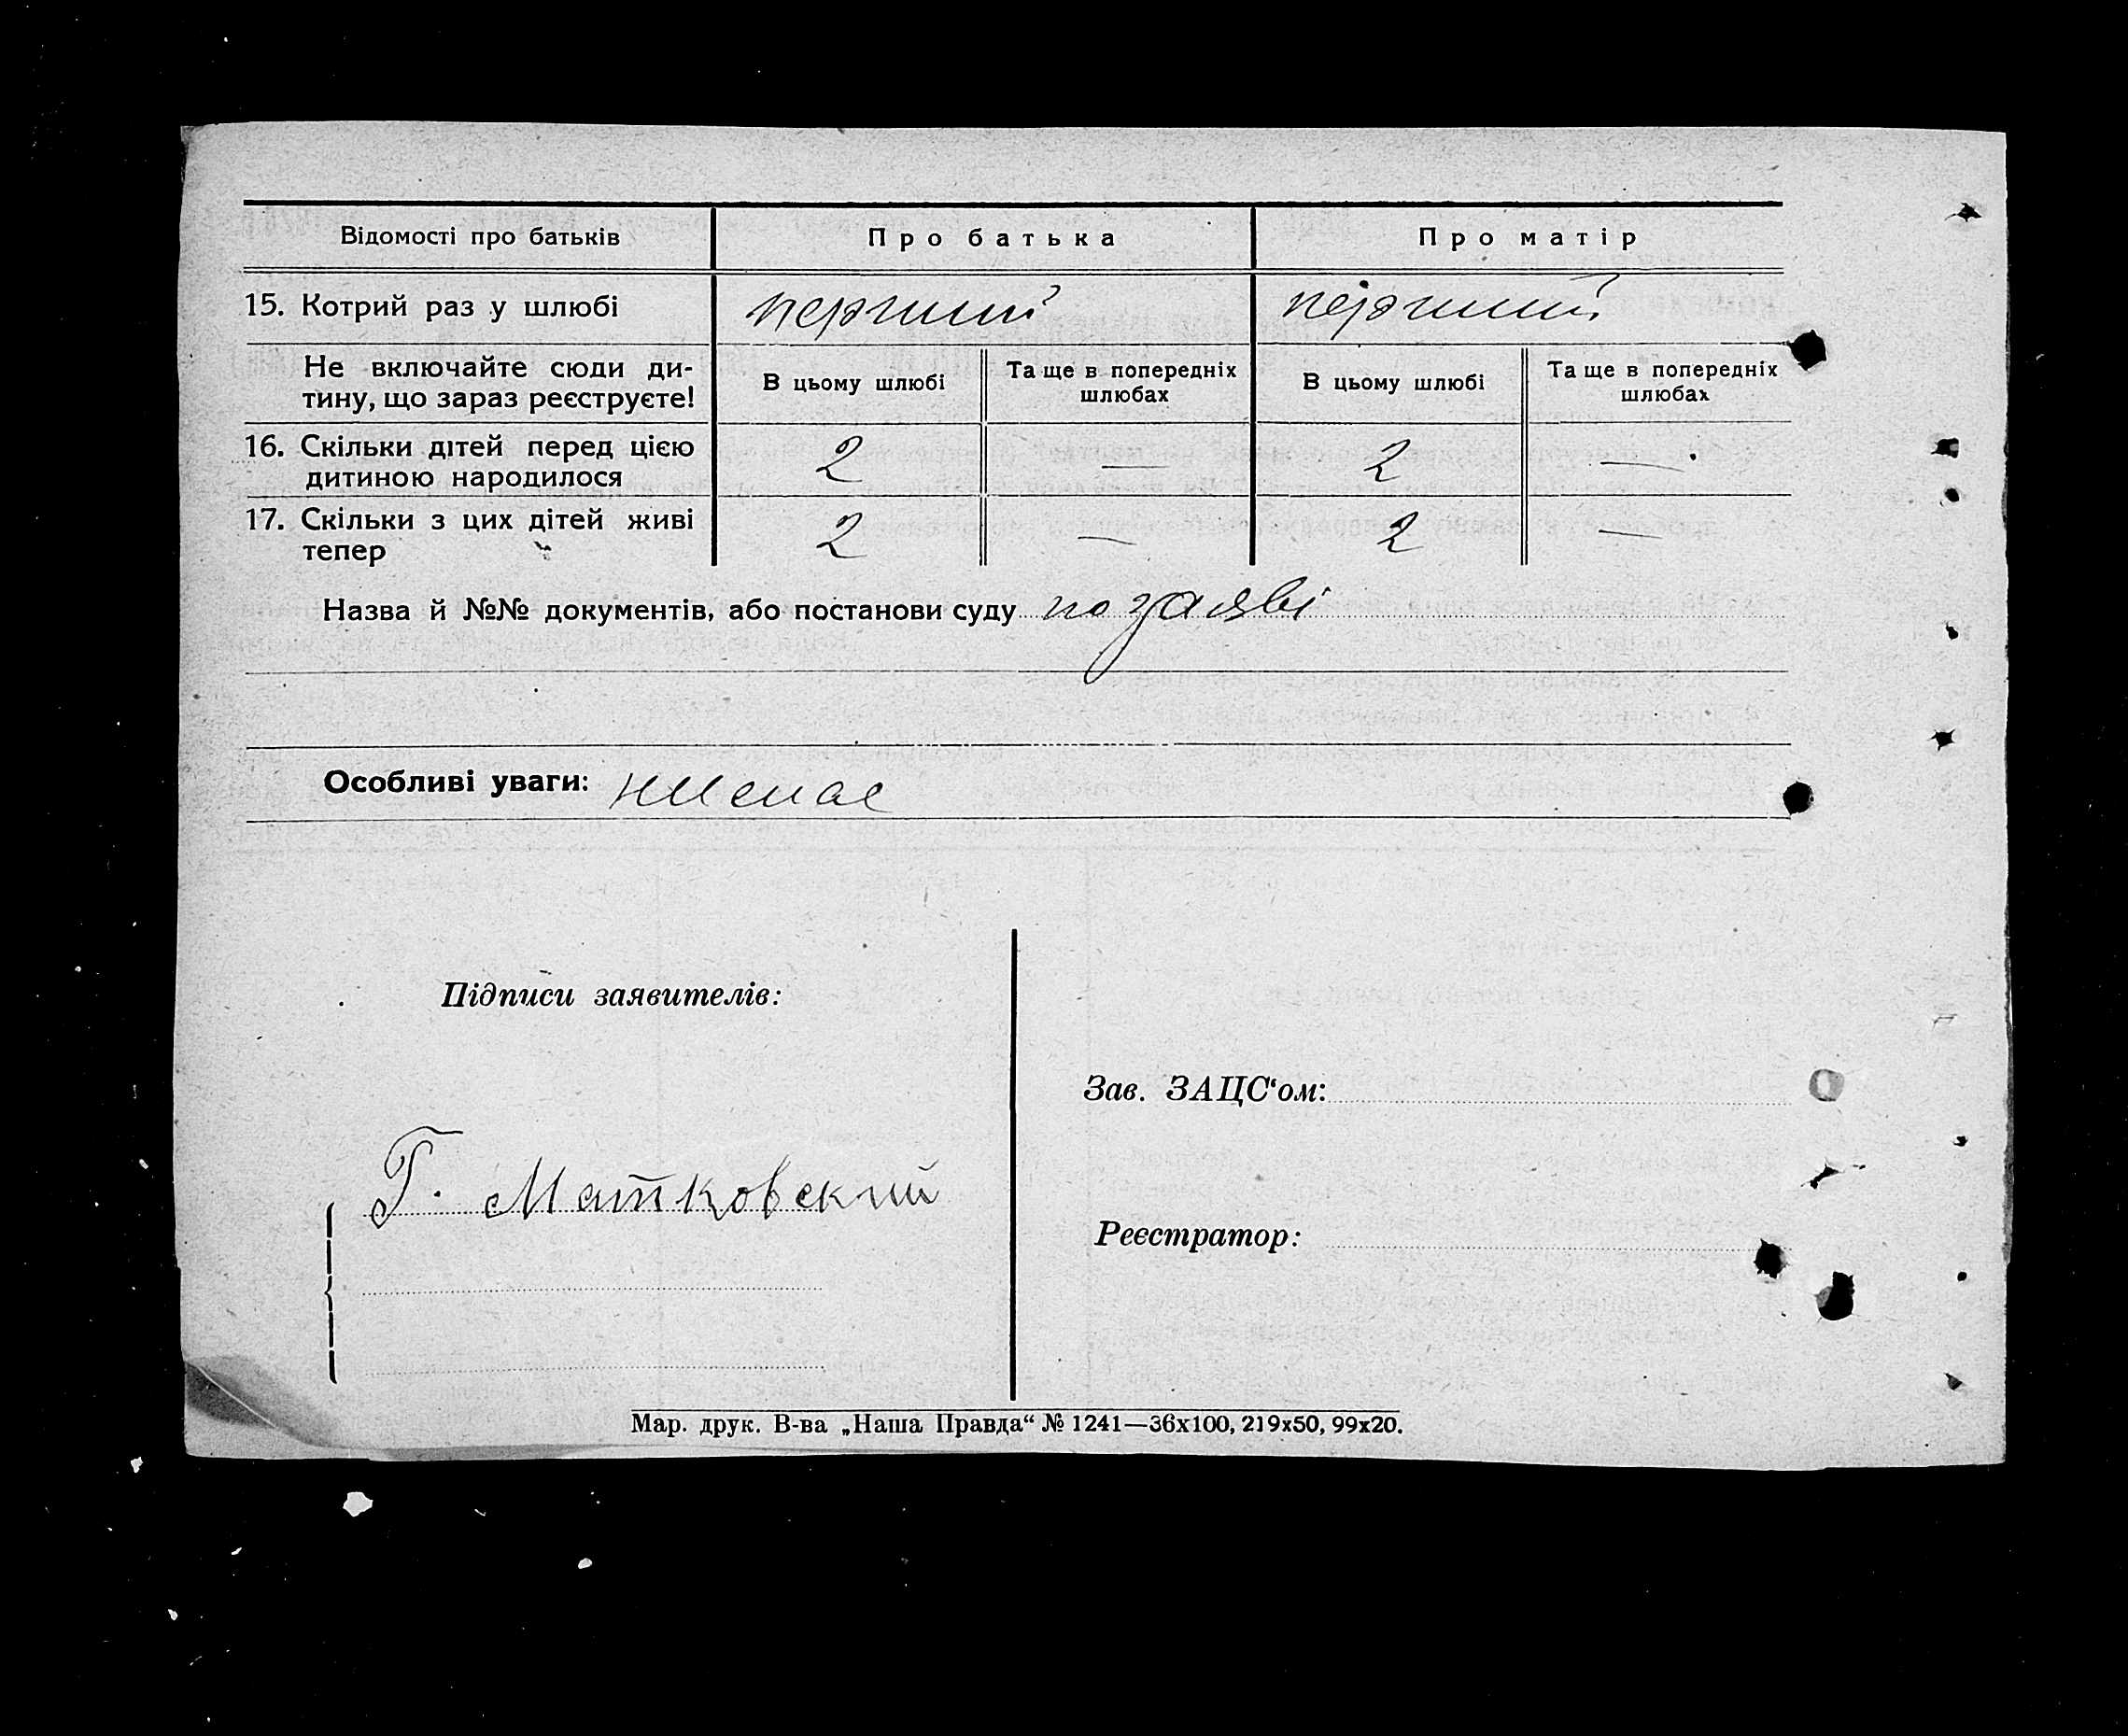 Відомості про батьків Про батька Про матір
15. Котрий раз у шлюбі перший перший
Не включайте сюди ди-
тину, що зараз реєструєте!
В цьому шлюбі Та ще в попередніх
шлюбах
В цьому шлюбі Та ще в попередніх
шлюбах
16. Скільки дітей перед цією
дитиною народилося 2 — 2 —
17. Скільки з цих дітей живі
тепер 2 — 2 —
Назва й №№ документів, або постанови суду по заяві
Особливі уваги: немає
Підписи заявителів:
Зав. ЗАЦС‘ом:
Г. Матковский
Реєстратор:
Мар. друк. В-ва „Наша Правда“ № 1241—36х100, 219х50, 99х20.